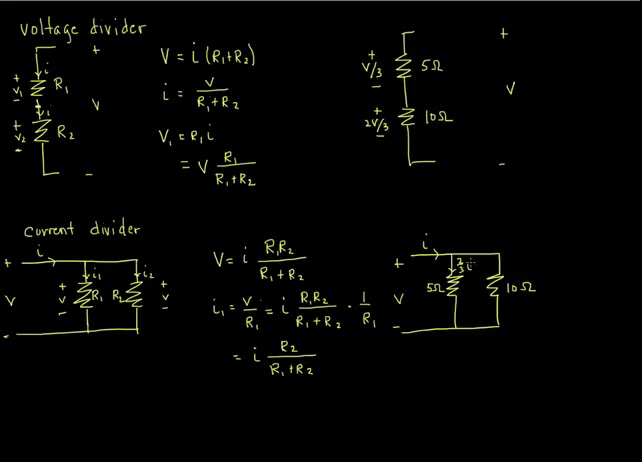 voltage divider
+ i
V₁ R₁
-
+ i
V₂ R₂
-
+
V
-
V = i (R₁+R₂)
i = V / (R₁+R₂)
V₁ = R₁ i
= V R₁ / (R₁+R₂)
+
V/3 5Ω
-
+
2V/3 10Ω
-
+
V
-
current divider
i
+
V
-
i₁ i₂
+ +
V R₁ R₂ V
- -
V = i R₁R₂ / (R₁+R₂)
i₁ = V/R₁ = i R₁R₂ / (R₁+R₂) · 1/R₁
= i R₂ / (R₁+R₂)
i
+
V
-
2/3 i
5Ω 10Ω